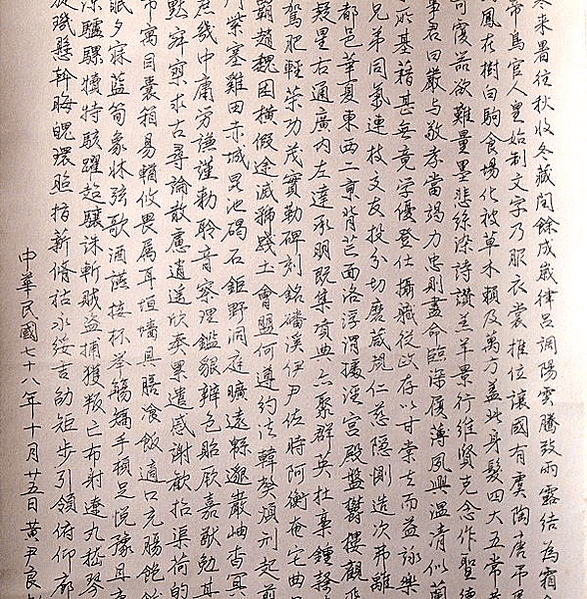 来暑往秋收冬藏閏餘成歲律呂調陽雲騰致雨露結為霜
帝鳥官人皇始制文字乃服衣裳推位讓國有虞陶唐弔
鳳在樹白駒食場化被草木賴及萬方蓋此身髮四大五常
可覆器欲難量墨悲絲染詩讚羔羊景行維賢克念作聖德
事君曰嚴与敬孝當竭力忠則盡命臨深履薄夙興溫凊似蘭
所基藉甚無竟學優登仕攝職從政存以甘棠去而益詠樂
兄弟同氣連枝交友投分切磨箴規仁慈隱惻造次弗離
都邑華夏東西二京背芒面洛浮渭據涇宮殿盤鬱樓觀
疑星右通廣內左達承明既集墳典亦聚群英杜稾鍾隸
駕肥輕策功茂實勒碑刻銘磻溪伊尹佐時阿衡奄宅曲
霸趙魏困橫假途滅虢踐土會盟何遵約法韓弊煩刑起翦
門紫塞雞田赤城昆池碣石鉅野洞庭曠遠緜邈巖岫杳冥
庶幾中庸勞謙謹勅聆音察理鑑貌辨色貽厥嘉猷勉其
默寂寥求古尋論散慮逍遙欣奏累遣慼謝歡招渠荷的
市寓目囊箱易輶攸畏属耳垣墻具膳飡飯適口充腸飽飫
眠夕寐藍筍象牀弦歌酒讌接杯举觴矯手頓足悅豫且康
驢騾犢特駭躍超驤誅斬賊盜捕獲叛亡布射遼丸嵇琴
旋璣懸斡晦魄環照指薪脩祜永綏吉劭矩步引領俯仰廊
中華民國七十八年十月廿五日黃尹良